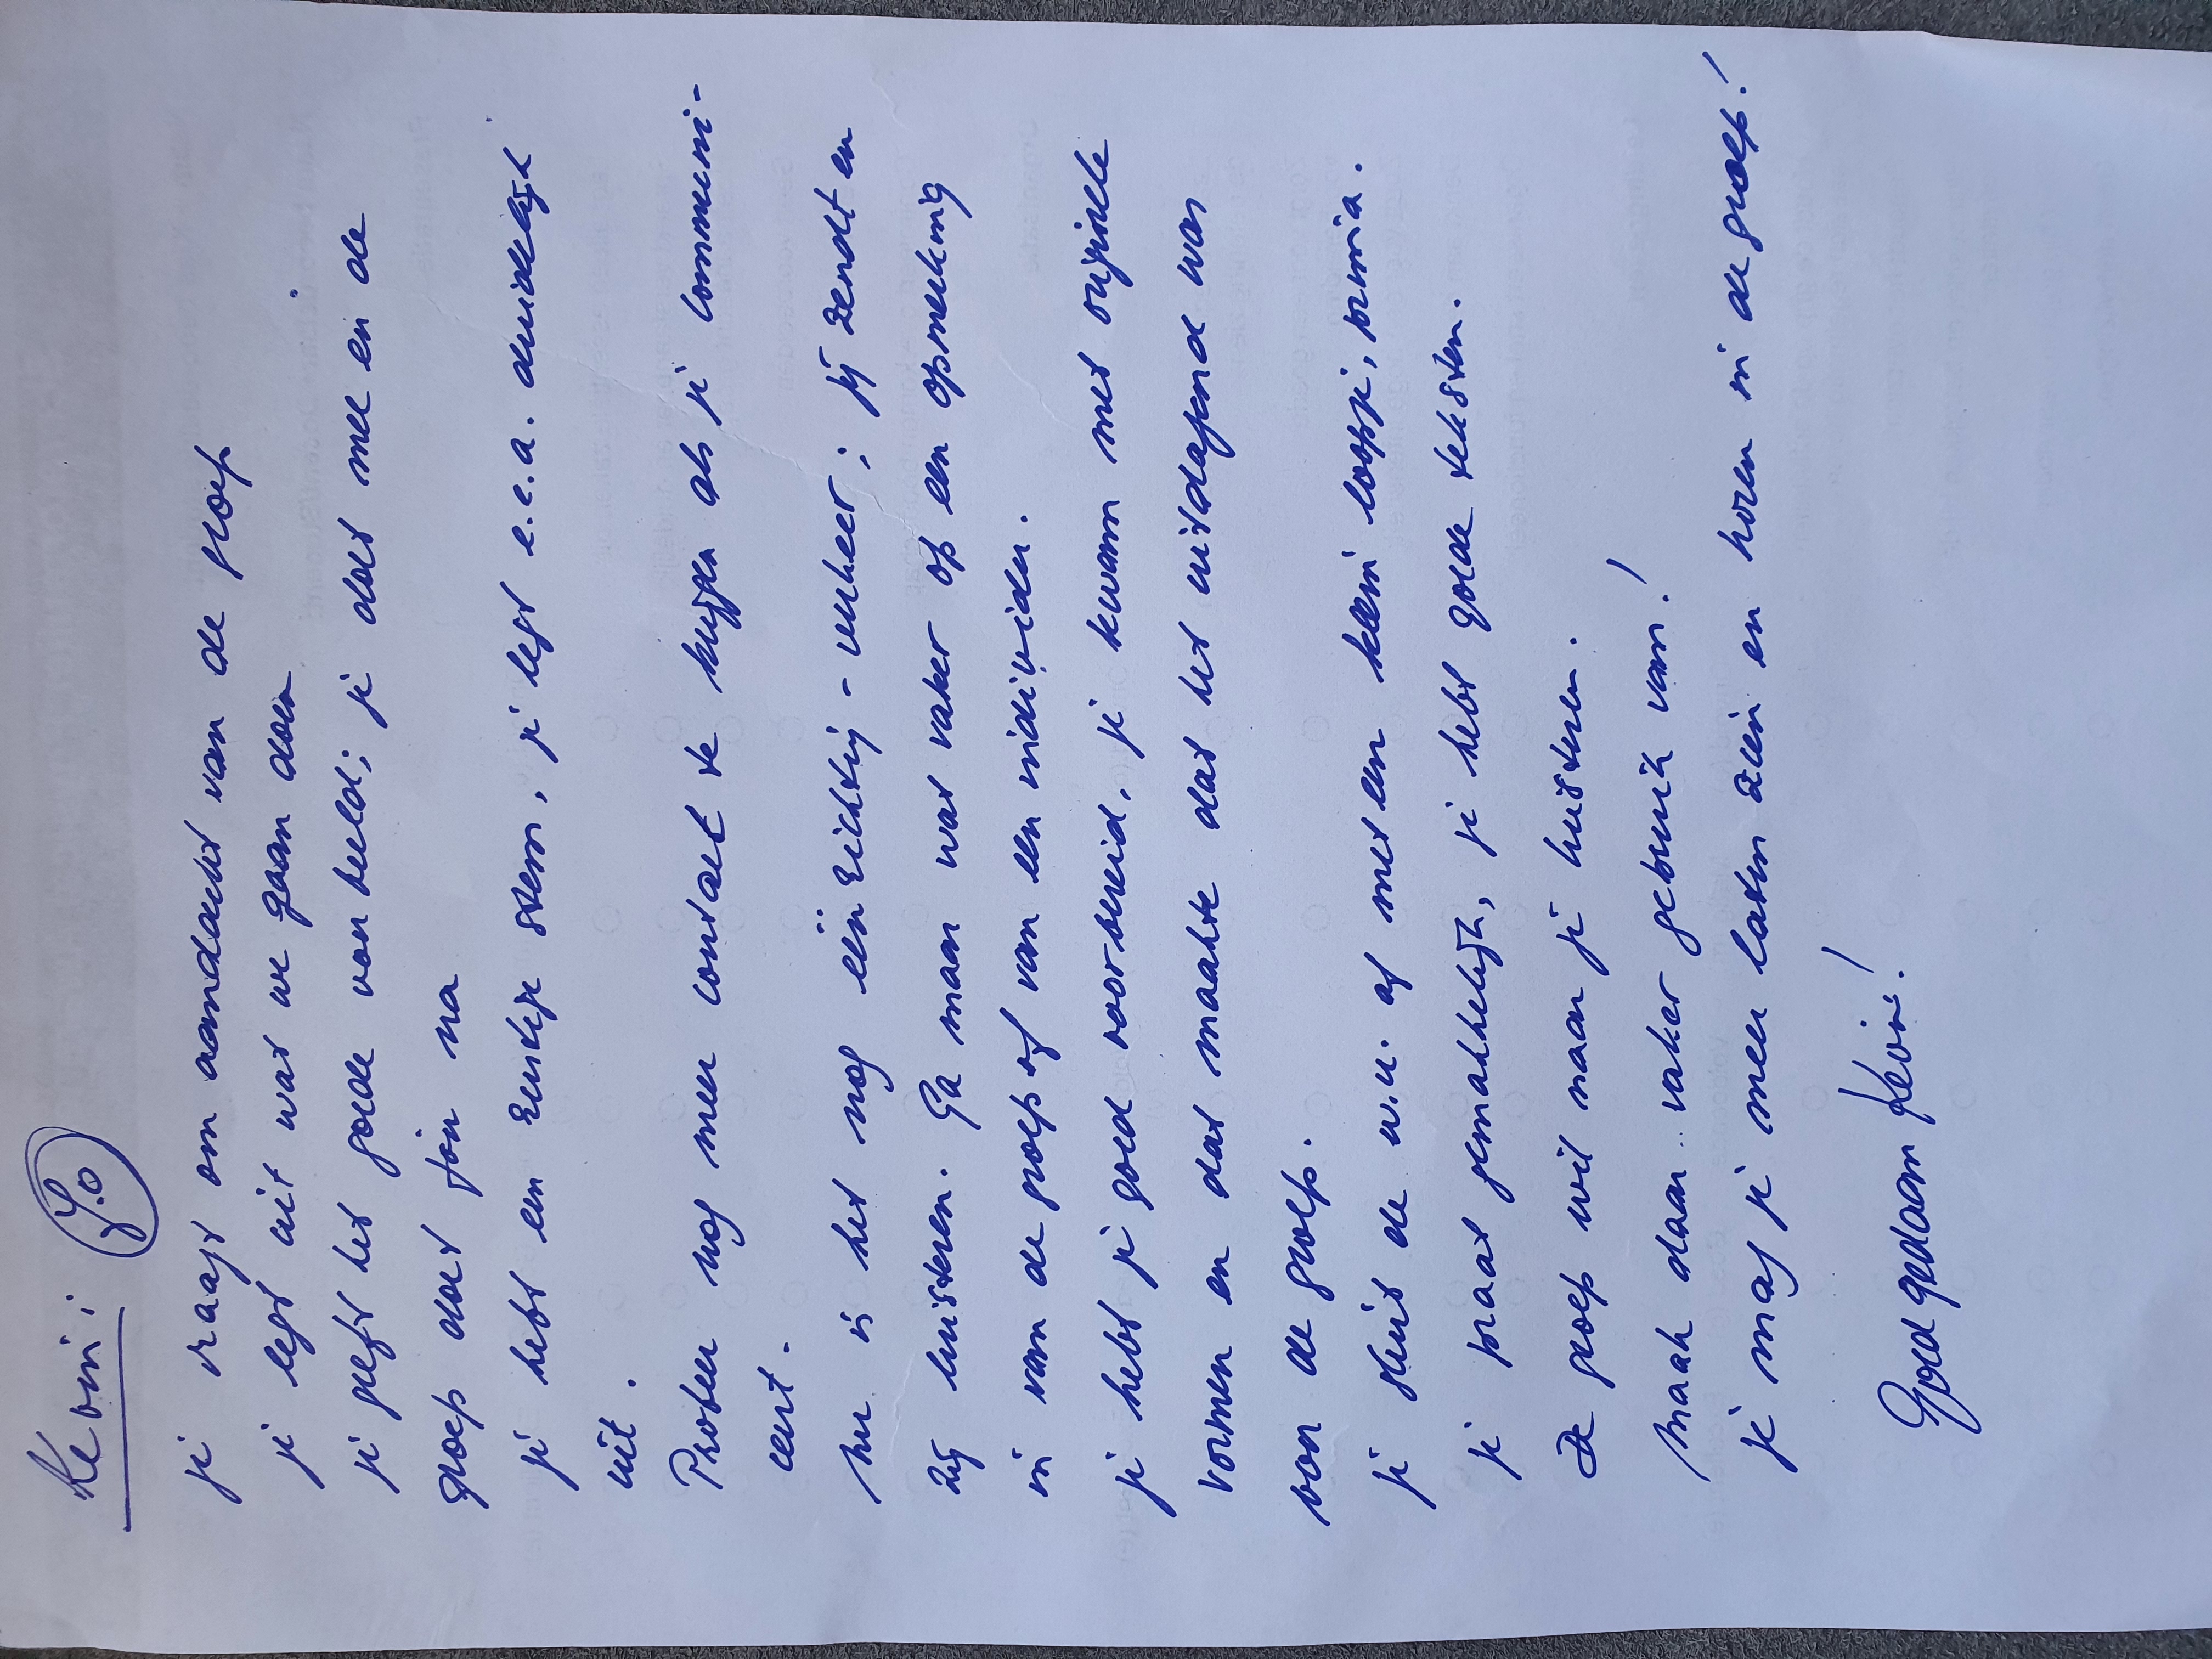 Kevin: 7.0
je vraagt om aandacht van de groep
je legt uit wat we gaan doen
je geeft het goede voorbeeld; je doet mee en de
groep doet fijn na
je hebt een rustige stem, je legt e.e.a. duidelijk
uit.
Probeer nog meer contact te krijgen als je communi-
ceert.
nu is het nog één richting-verkeer; jij zendt en
zij luisteren. Ga maar wat vaker op een opmerking
in van de groep of van een individu.
je hebt je goed voorbereid, je kwam met originele
vormen en dat maakte dat het uitdagend was
voor de groep.
je sluit de w.u. af met een klein loopje, prima.
je praat gemakkelijk, je hebt goede teksten.
De groep wil naar je luisteren.
Maak daar vaker gebruik van!
je mag je meer laten zien en horen in de groep!
Goed gedaan Kevin!